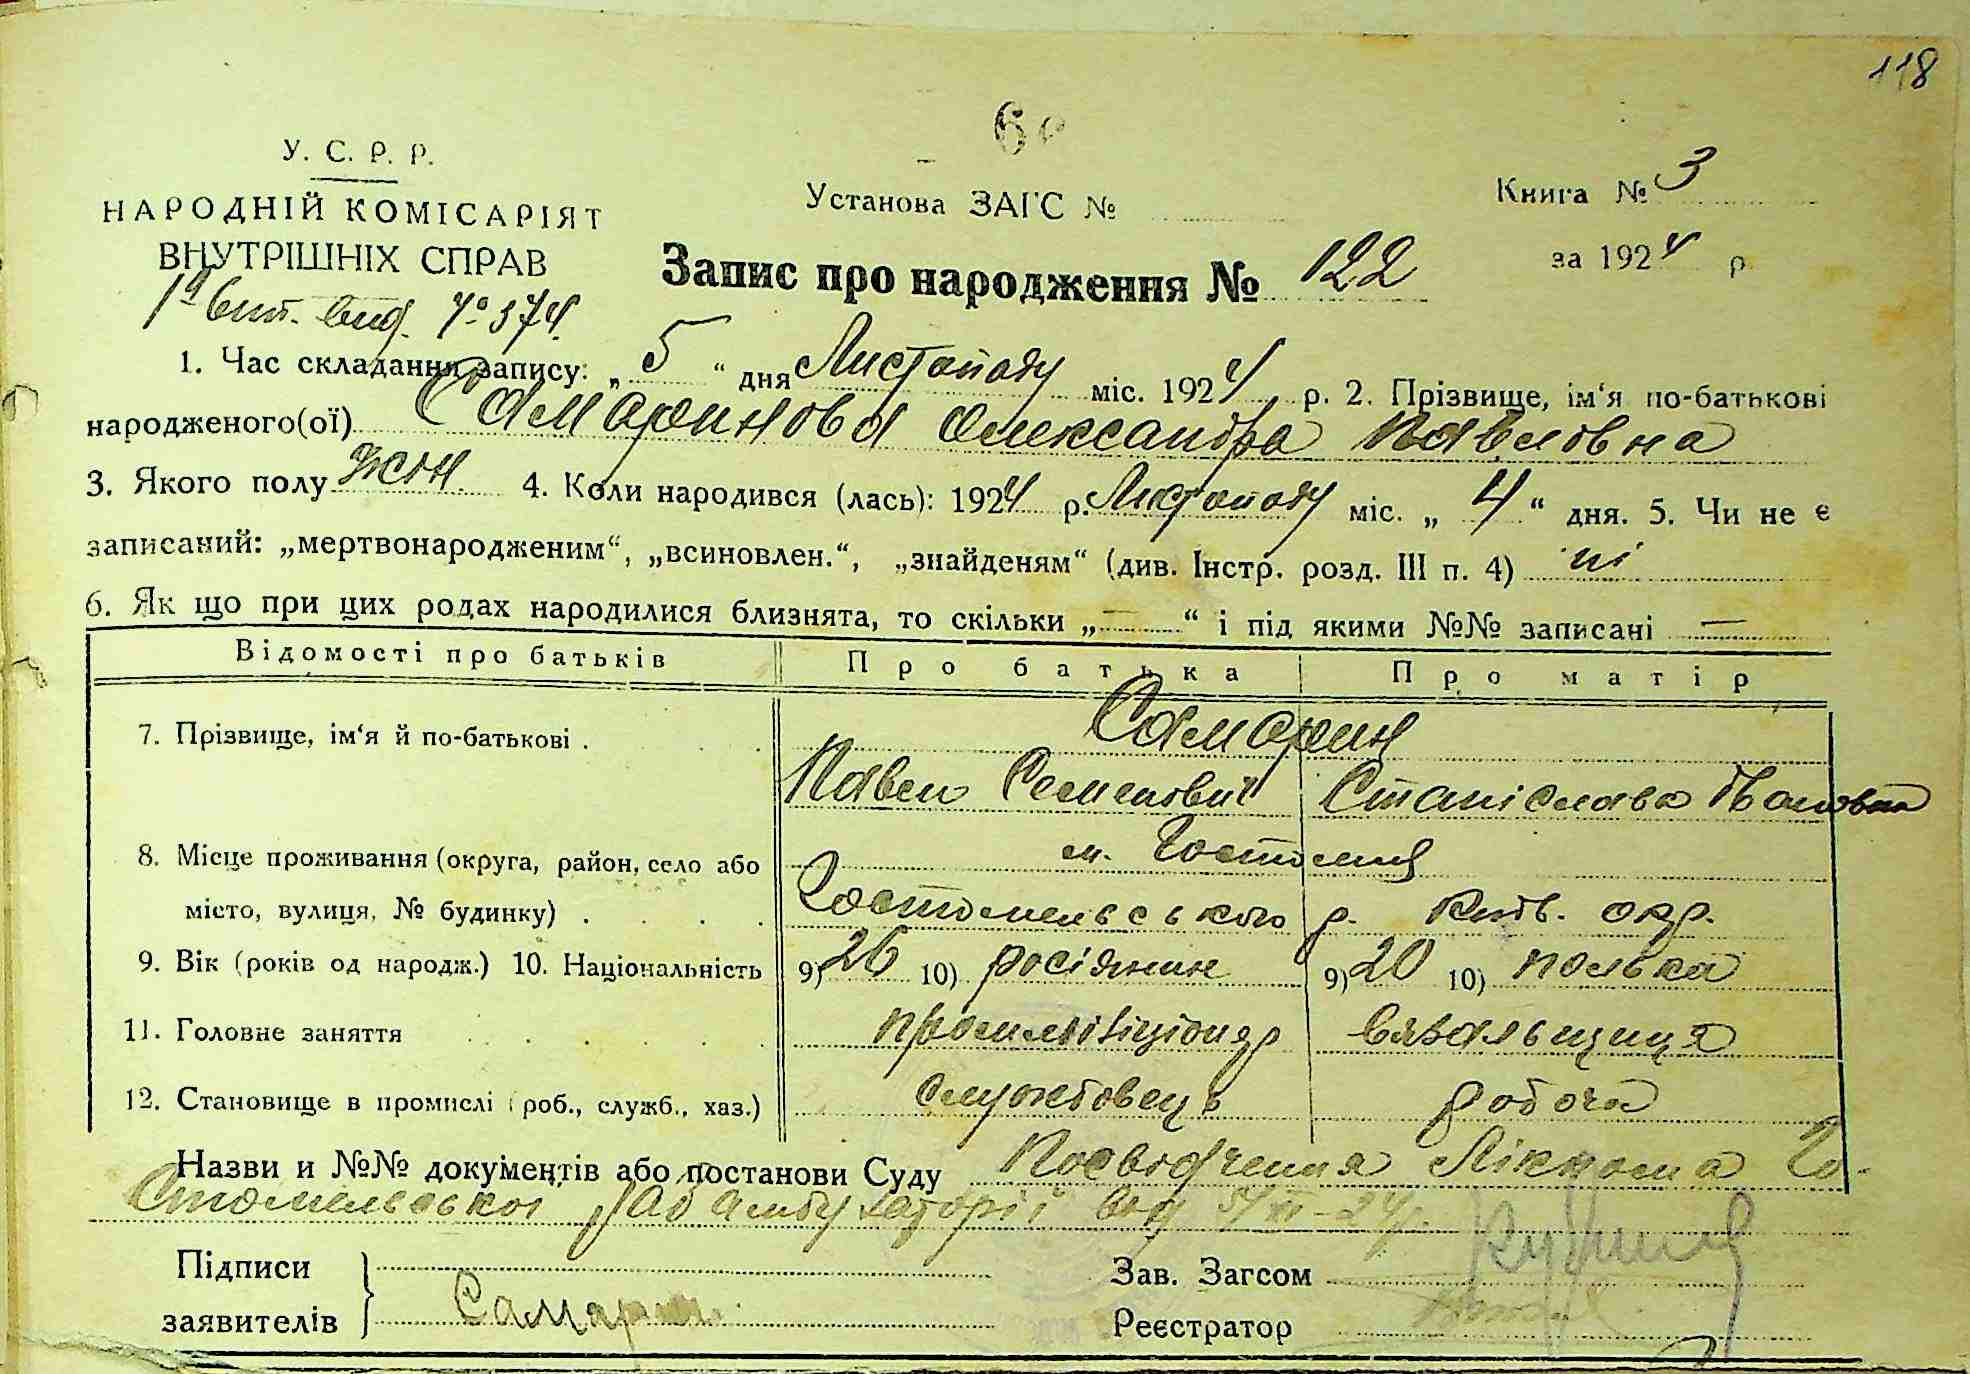 118
60
У. С. Р. Р.
НАРОДНІЙ КОМІСАРІЯТ
ВНУТРІШНІХ СПРАВ
Установа ЗАГС №
Книга № 3
за 1924 р
Запис про народження № 122
1. Час складання запису: „ 5 “ дня Листопаду міс. 1924 р. 2. Прізвище, ім‘я по-батькові
народженого(ої) Самаринова Олександра Павловна
3. Якого полу жін. 4. Коли народився (лась): 1924 р. Листопаду міс. „ 4 “ дня. 5. Чи не є
записаний: „мертвонародженим“, „всиновлен.“, „знайденям“ (див. Інстр. розд. III п. 4) ні
6. Як що при цих родах народилися близнята, то скільки „—“ і під якими №№ записані —
Відомості про батьків Про батька Про матір
7. Прізвище, ім‘я й по-батькові . Самарин
Павел Семенович Станіслава Івановна
8. Місце проживання (округа, район, село або м. Гостомля
місто, вулиця, № будинку) . Гостомельського р. Київ. окр.
9. Вік (років од народж.) 10. Національність 9) 26 10) росіянин 9) 20 10) полька
11. Головне заняття вязальщиця
12. Становище в промислі (роб., служб., хаз.) службовець робоча
Назви и №№ документів або постанови Суду Посвідчення Лікпома Го-
стомельської амбулаторії від 5/XI-24р.
Підписи
заявителів Самарин
Зав. Загсом
Реєстратор